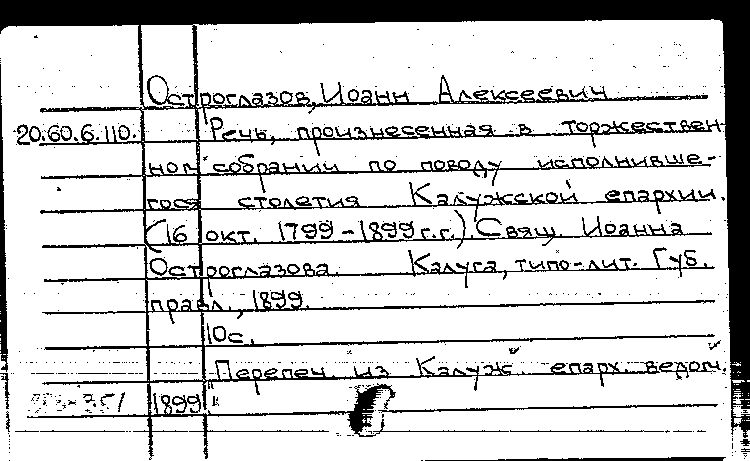 Остроглазов, Иоанн Алексеевич
20.60.6.110. Речь, произнесенная в торжествен-
ном собрании по поводу исполнивше-
гося столетия Калужской епархии.
(16 окт. 1799-1899 г.г.) Свящ. Иоанна
Остроглазова. Калуга, типо-лит. Губ.
правл., 1899.
10с.
Перепеч. из "Калуж. епарх. ведом.
1899"